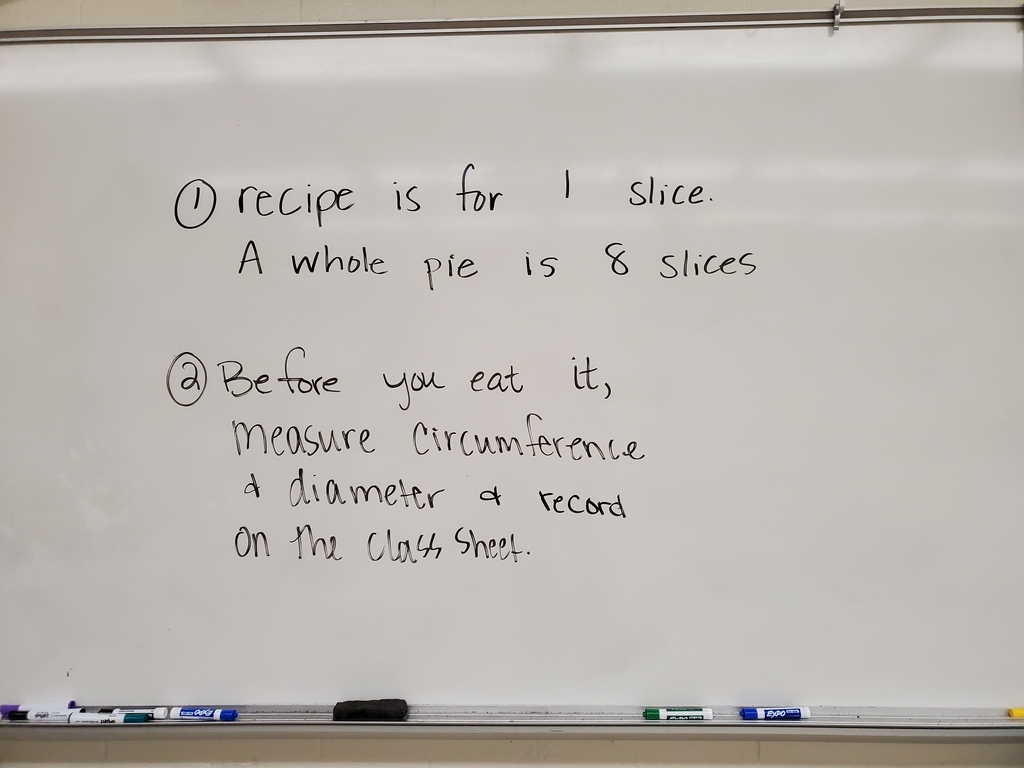 ① recipe is for 1 slice.
A whole pie is 8 slices
② Before you eat it,
measure circumference
& diameter & record
on the class sheet.
EXPO
EXPO